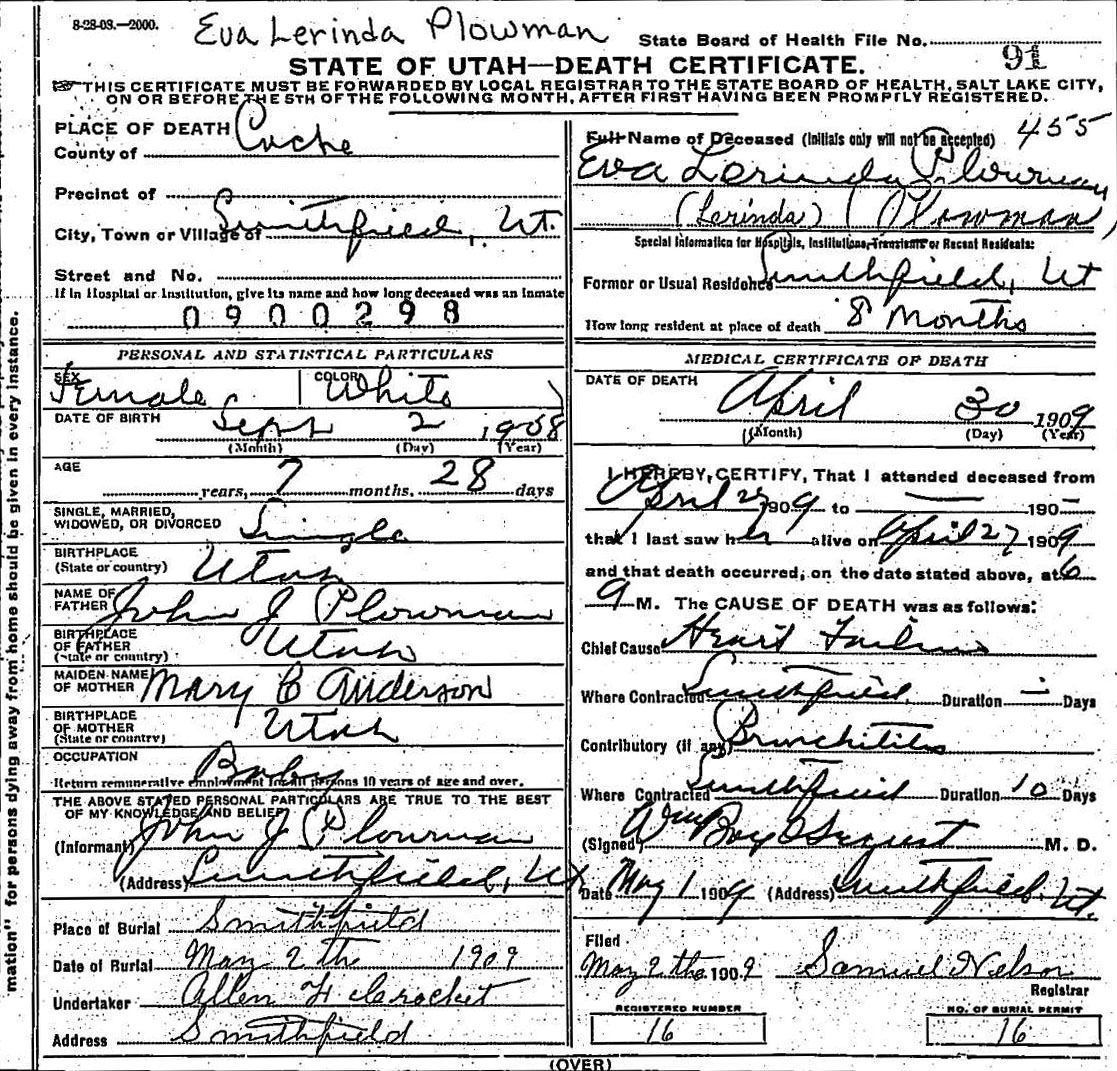 8-28-08.—2000.
Eva Lerinda Plowman
State Board of Health File No.
91
STATE OF UTAH—DEATH CERTIFICATE.
THIS CERTIFICATE MUST BE FORWARDED BY LOCAL REGISTRAR TO THE STATE BOARD OF HEALTH, SALT LAKE CITY,
ON OR BEFORE THE 5TH OF THE FOLLOWING MONTH, AFTER FIRST HAVING BEEN PROMPTLY REGISTERED.
mation" for persons dying away from home should be given in every instance.
PLACE OF DEATH
County of Cache
Precinct of
City, Town or Village of Smithfield, Ut.
Street and No.
If in Hospital or Institution, give its name and how long deceased was an Inmate
0900298
Full Name of Deceased (Initials only will not be accepted) 455
Eva Lerinda Plowman
(Lerinda) (Plowman)
Special Information for Hospitals, Institutions, Transients or Recent Residents:
Former or Usual Residence Smithfield, Ut
How long resident at place of death 8 Months
PERSONAL AND STATISTICAL PARTICULARS
SEX Female COLOR White
DATE OF BIRTH Sept 2 1908
(Month) (Day) (Year)
AGE
years, 7 months, 28 days
SINGLE, MARRIED,
WIDOWED, OR DIVORCED Single
BIRTHPLACE
(State or country) Utah
NAME OF
FATHER John J Plowman
BIRTHPLACE
OF FATHER
(State or country) Utah
MAIDEN NAME
OF MOTHER Mary C Anderson
BIRTHPLACE
OF MOTHER
(State or country) Utah
OCCUPATION
Baby
Return remunerative employment for all persons 10 years of age and over.
THE ABOVE STATED PERSONAL PARTICULARS ARE TRUE TO THE BEST
OF MY KNOWLEDGE AND BELIEF
(Informant) John J Plowman
(Address) Smithfield, Ut
Place of Burial Smithfield
Date of Burial May 2 the 1909
Undertaker Allen
Address Smithfield
MEDICAL CERTIFICATE OF DEATH
DATE OF DEATH
April 30 1909
(Month) (Day) (Year)
I HEREBY CERTIFY, That I attended deceased from
April 27 1909 to — 190–
that I last saw her alive on April 27 1909
and that death occurred, on the date stated above, at 6
M. The CAUSE OF DEATH was as follows:
Chief Cause Heart Failure
Where Contracted Smithfield, Duration Days
Contributory (if any) Bronchitis
Where Contracted Smithfield Duration 10 Days
(Signed) Wm M. D.
Date May 1 1909 (Address) Smithfield. Ut.
Filed
May 2 the 1909 Samuel Nelson
Registrar
REGISTERED NUMBER
16
NO. OF BURIAL PERMIT
16
(OVER)